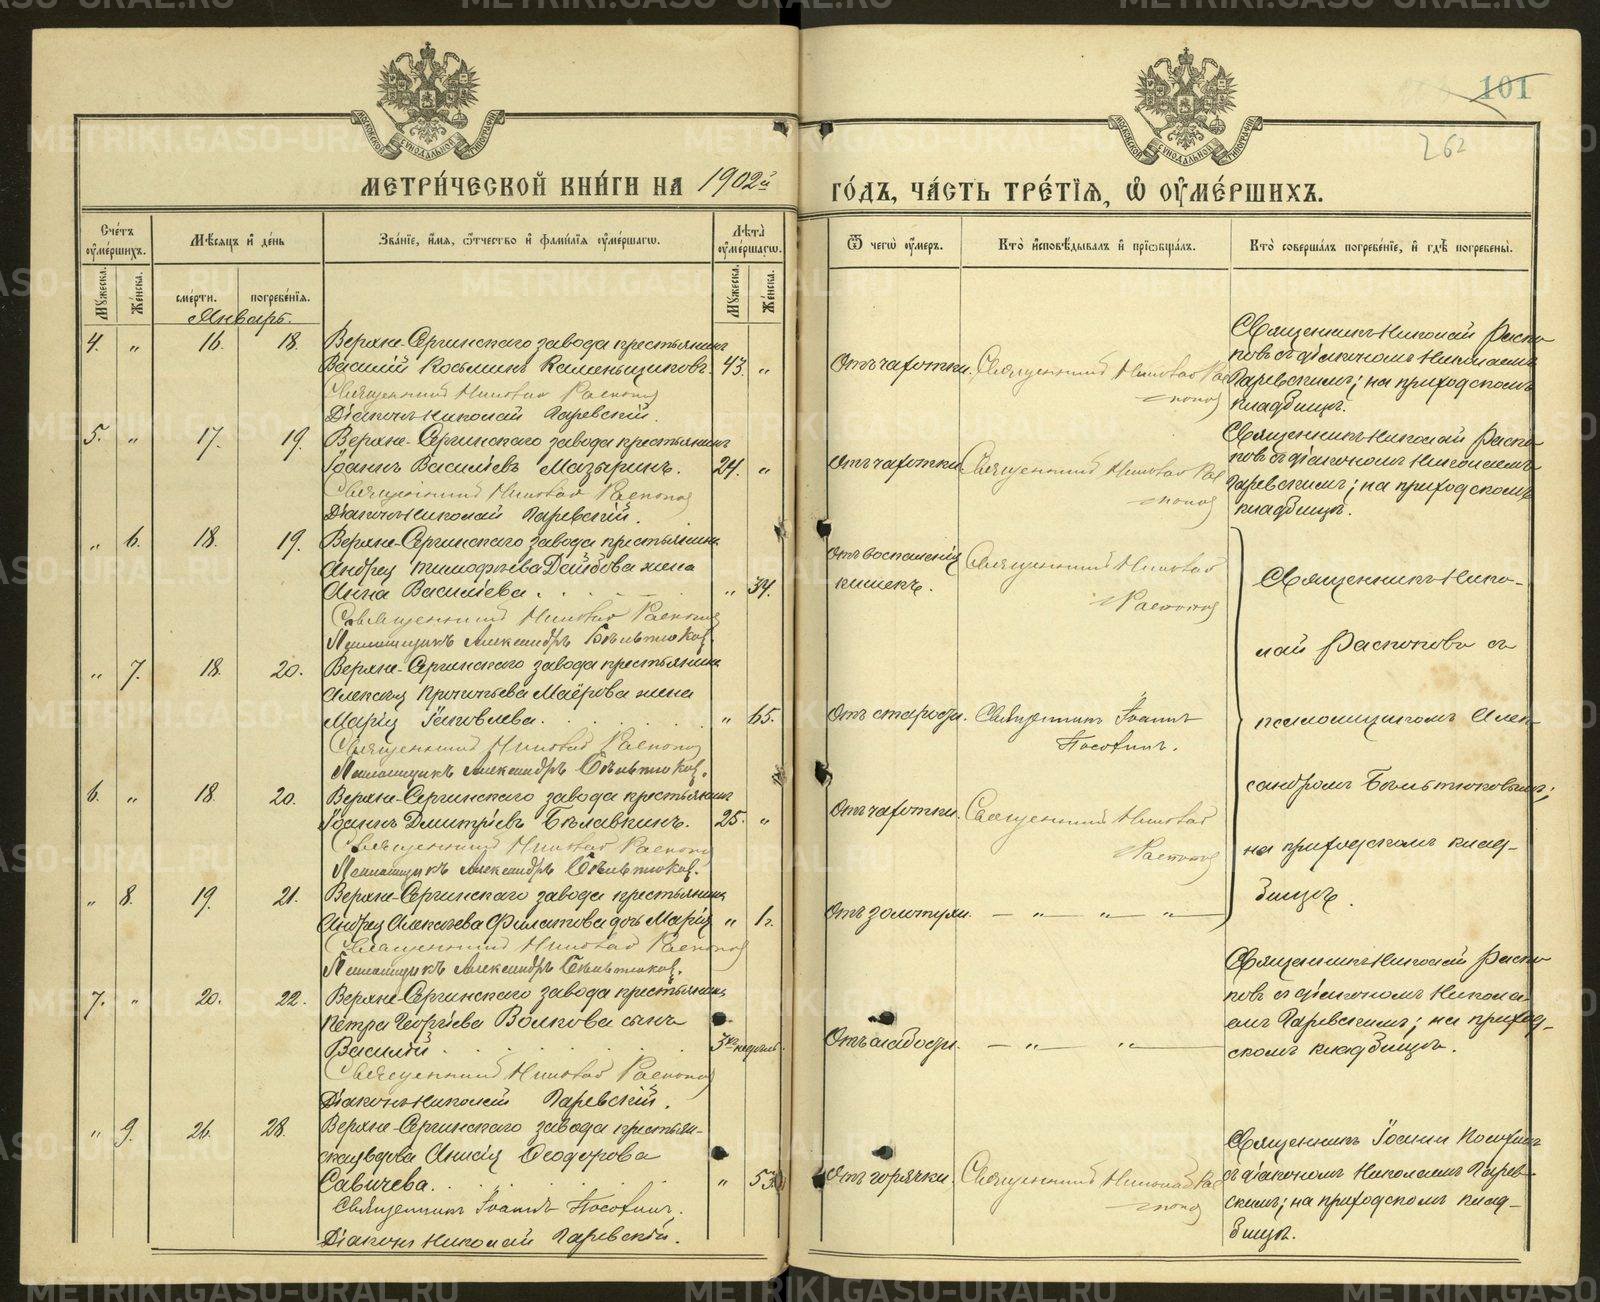 101
262
МЕТРИ́ЧЕСКОЙ КНИ́ГИ НА 1902й
ГО́ДЪ, ЧА́СТЬ ТРЕ́ТІЯ, Ѡ ОУМЕ́РШИХЪ.
Сче́тъ оуме́ршихъ.
Мѣ́сяцъ и де́нь
Зва́ніе, и́мя, ѻ́тчество и фами́лія оуме́ршагѡ.
Лѣ́та оуме́ршагѡ.
Мꙋжеска.
Же́нска.
сме́рти.
погребе́нія.
Мꙋжеска.
Же́нска.
Ѿ чегѡ̀ оу́меръ.
Кто̀ исповѣ́дывалъ и прїѡбща́лъ.
Кто̀ соверша́лъ погребе́ніе, и гдѣ̀ погребены̀.
Январь.
4. „ 16. 18. Верхне-Сергинскаго завода крестьянинъ
Василій Косьминъ Каменьщиковъ. 43. „
Священникъ Николай Распопов
Діаконъ Николай Паревскій.
Отъ чахотки.
Священникъ Николай Рас
попов
Священникъ Николай Распо-
повъ съ діакономъ Николаемъ
Паревскимъ; на приходскомъ
кладбищѣ.
5. „ 17. 19. Верхне-Сергинскаго завода крестьянинъ
Іоаннъ Васильевъ Мазыринъ. 24. „
Священникъ Николай Распопов
Діаконъ Николай Паревскій.
Отъ чахотки.
Священникъ Николай Рас
попов
Священникъ Николай Распо-
повъ съ діакономъ Николаемъ
Паревскимъ; на приходскомъ
кладбищѣ.
„ 6. 18. 19. Верхне-Сергинскаго завода крестьянина
Андрея Тимофѣева жена
Анна Васильева. „ 34.
Священникъ Николай Распопов
Псаломщикъ Александръ Бѣльтюков.
Отъ воспаленія
кишекъ.
Священникъ Николай
Распопов
„ 7. 18. 20. Верхне-Сергинскаго завода крестьянина
Алексѣя Прокопьева Маёрова жена
Марія Іаковлева. „ 65.
Священникъ Николай Распопов
Псаломщикъ Александръ Бѣльтюков.
Отъ старости.
Священникъ Іоаннъ
Носохинъ.
6. „ 18. 20. Верхне-Сергинскаго завода крестьянинъ
Іоаннъ Дмитріевъ Бѣлавкинъ. 25. „
Священникъ Николай Распопов
Псаломщикъ Александръ Бѣльтюков.
Отъ чахотки.
Священникъ Николай
Распопов
„ 8. 19. 21. Верхне-Сергинскаго завода крестьянина
Андрея Алексѣева Филатова дочь Марія „ 1г.
Священникъ Николай Распопов
Псаломщикъ Александръ Бѣльтюков.
Отъ золотухи. — „ — „ —
Священникъ Нико-
лай Распоповъ съ
псаломщикомъ Алек-
сандромъ Бѣльтюковымъ;
на приходскомъ клад-
бищѣ.
7. „ 20. 22. Верхне-Сергинскаго завода крестьянина
Петра Георгіева Волкова сынъ
Василій. 3хъ недѣль.
Священникъ Николай Распопов
Діаконъ Николай Паревскій.
Отъ слабости. — „ — „ —
Священникъ Николай Распо-
повъ съ діакономъ Никола-
емъ Паревскимъ; на приход-
скомъ кладбищѣ.
„ 9. 26. 28. Верхне-Сергинскаго завода крестьян-
ская вдова Анисія Ѳеодорова
Савичева. „ 53
Священникъ Іоаннъ Носохинъ.
Діаконъ Николай Паревскій.
Отъ горячки.
Священникъ Николай Рас
попов
Священникъ Іоаннъ Носохинъ
съ діакономъ Николаемъ Парев-
скимъ; на приходскомъ клад-
бищѣ.
METRIKI.GASO-URAL.RU